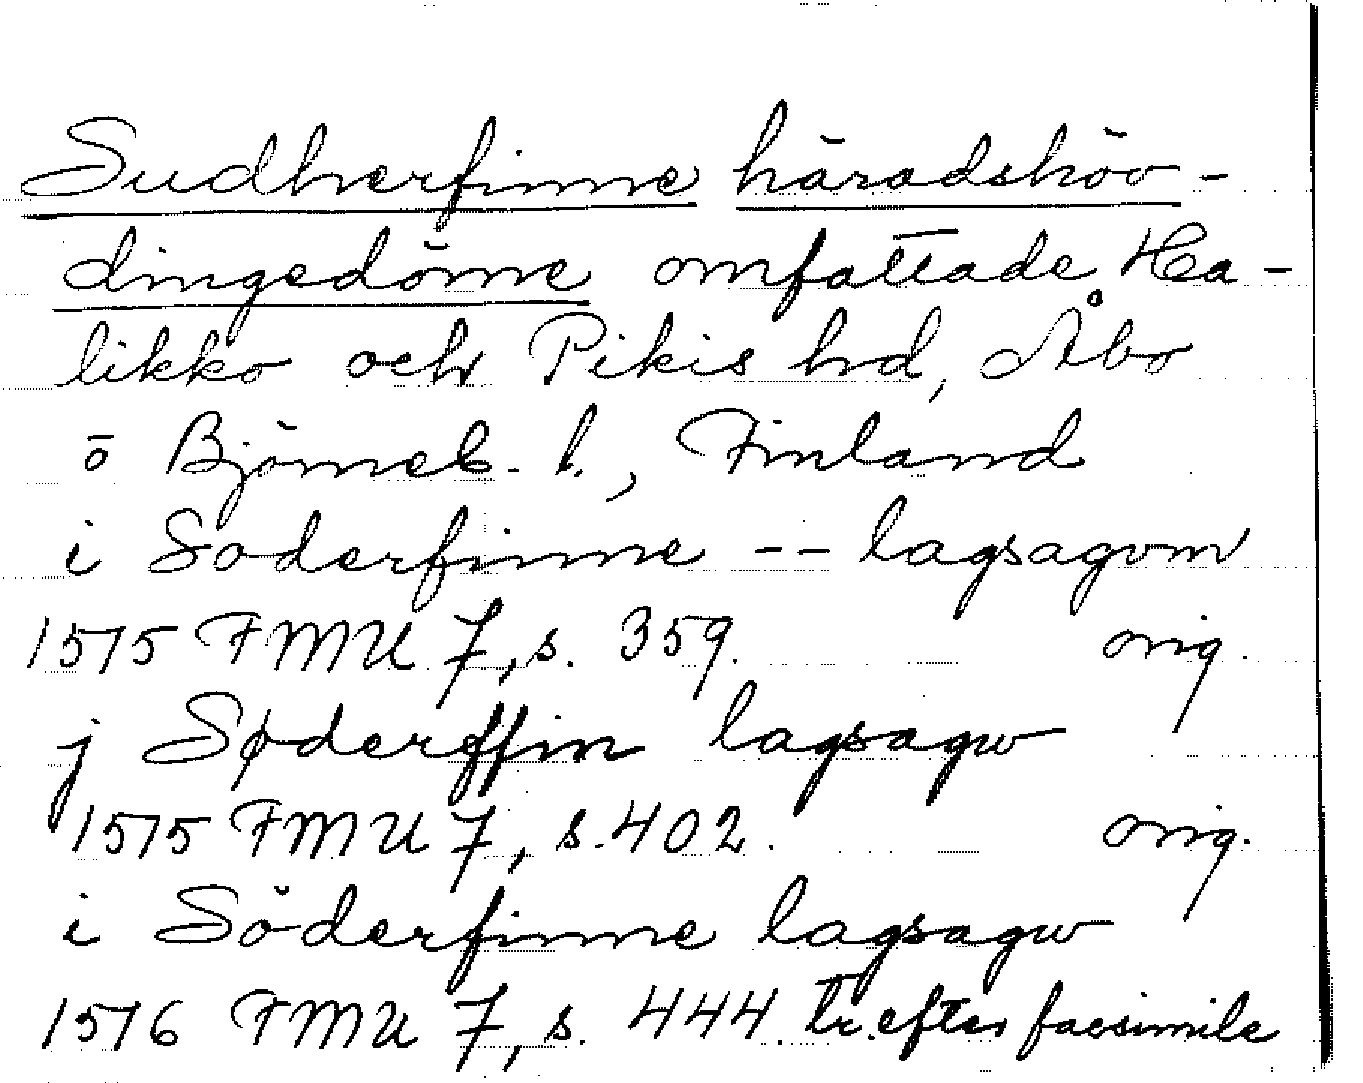 Sudherfinne häradshöv-
dingedöme omfattade Ha-
likko och Pikis hd, Åbo
o Björneb. l., Finland
i Söderfinne -- lagsagvm
1515 FMU 7, s. 359. orig.
j Søderffin lagsagw
1515 FMU 7, s. 402. orig.
i Söderfinne lagsagw
1516 FMU 7, s. 444. tr. efter facsimile